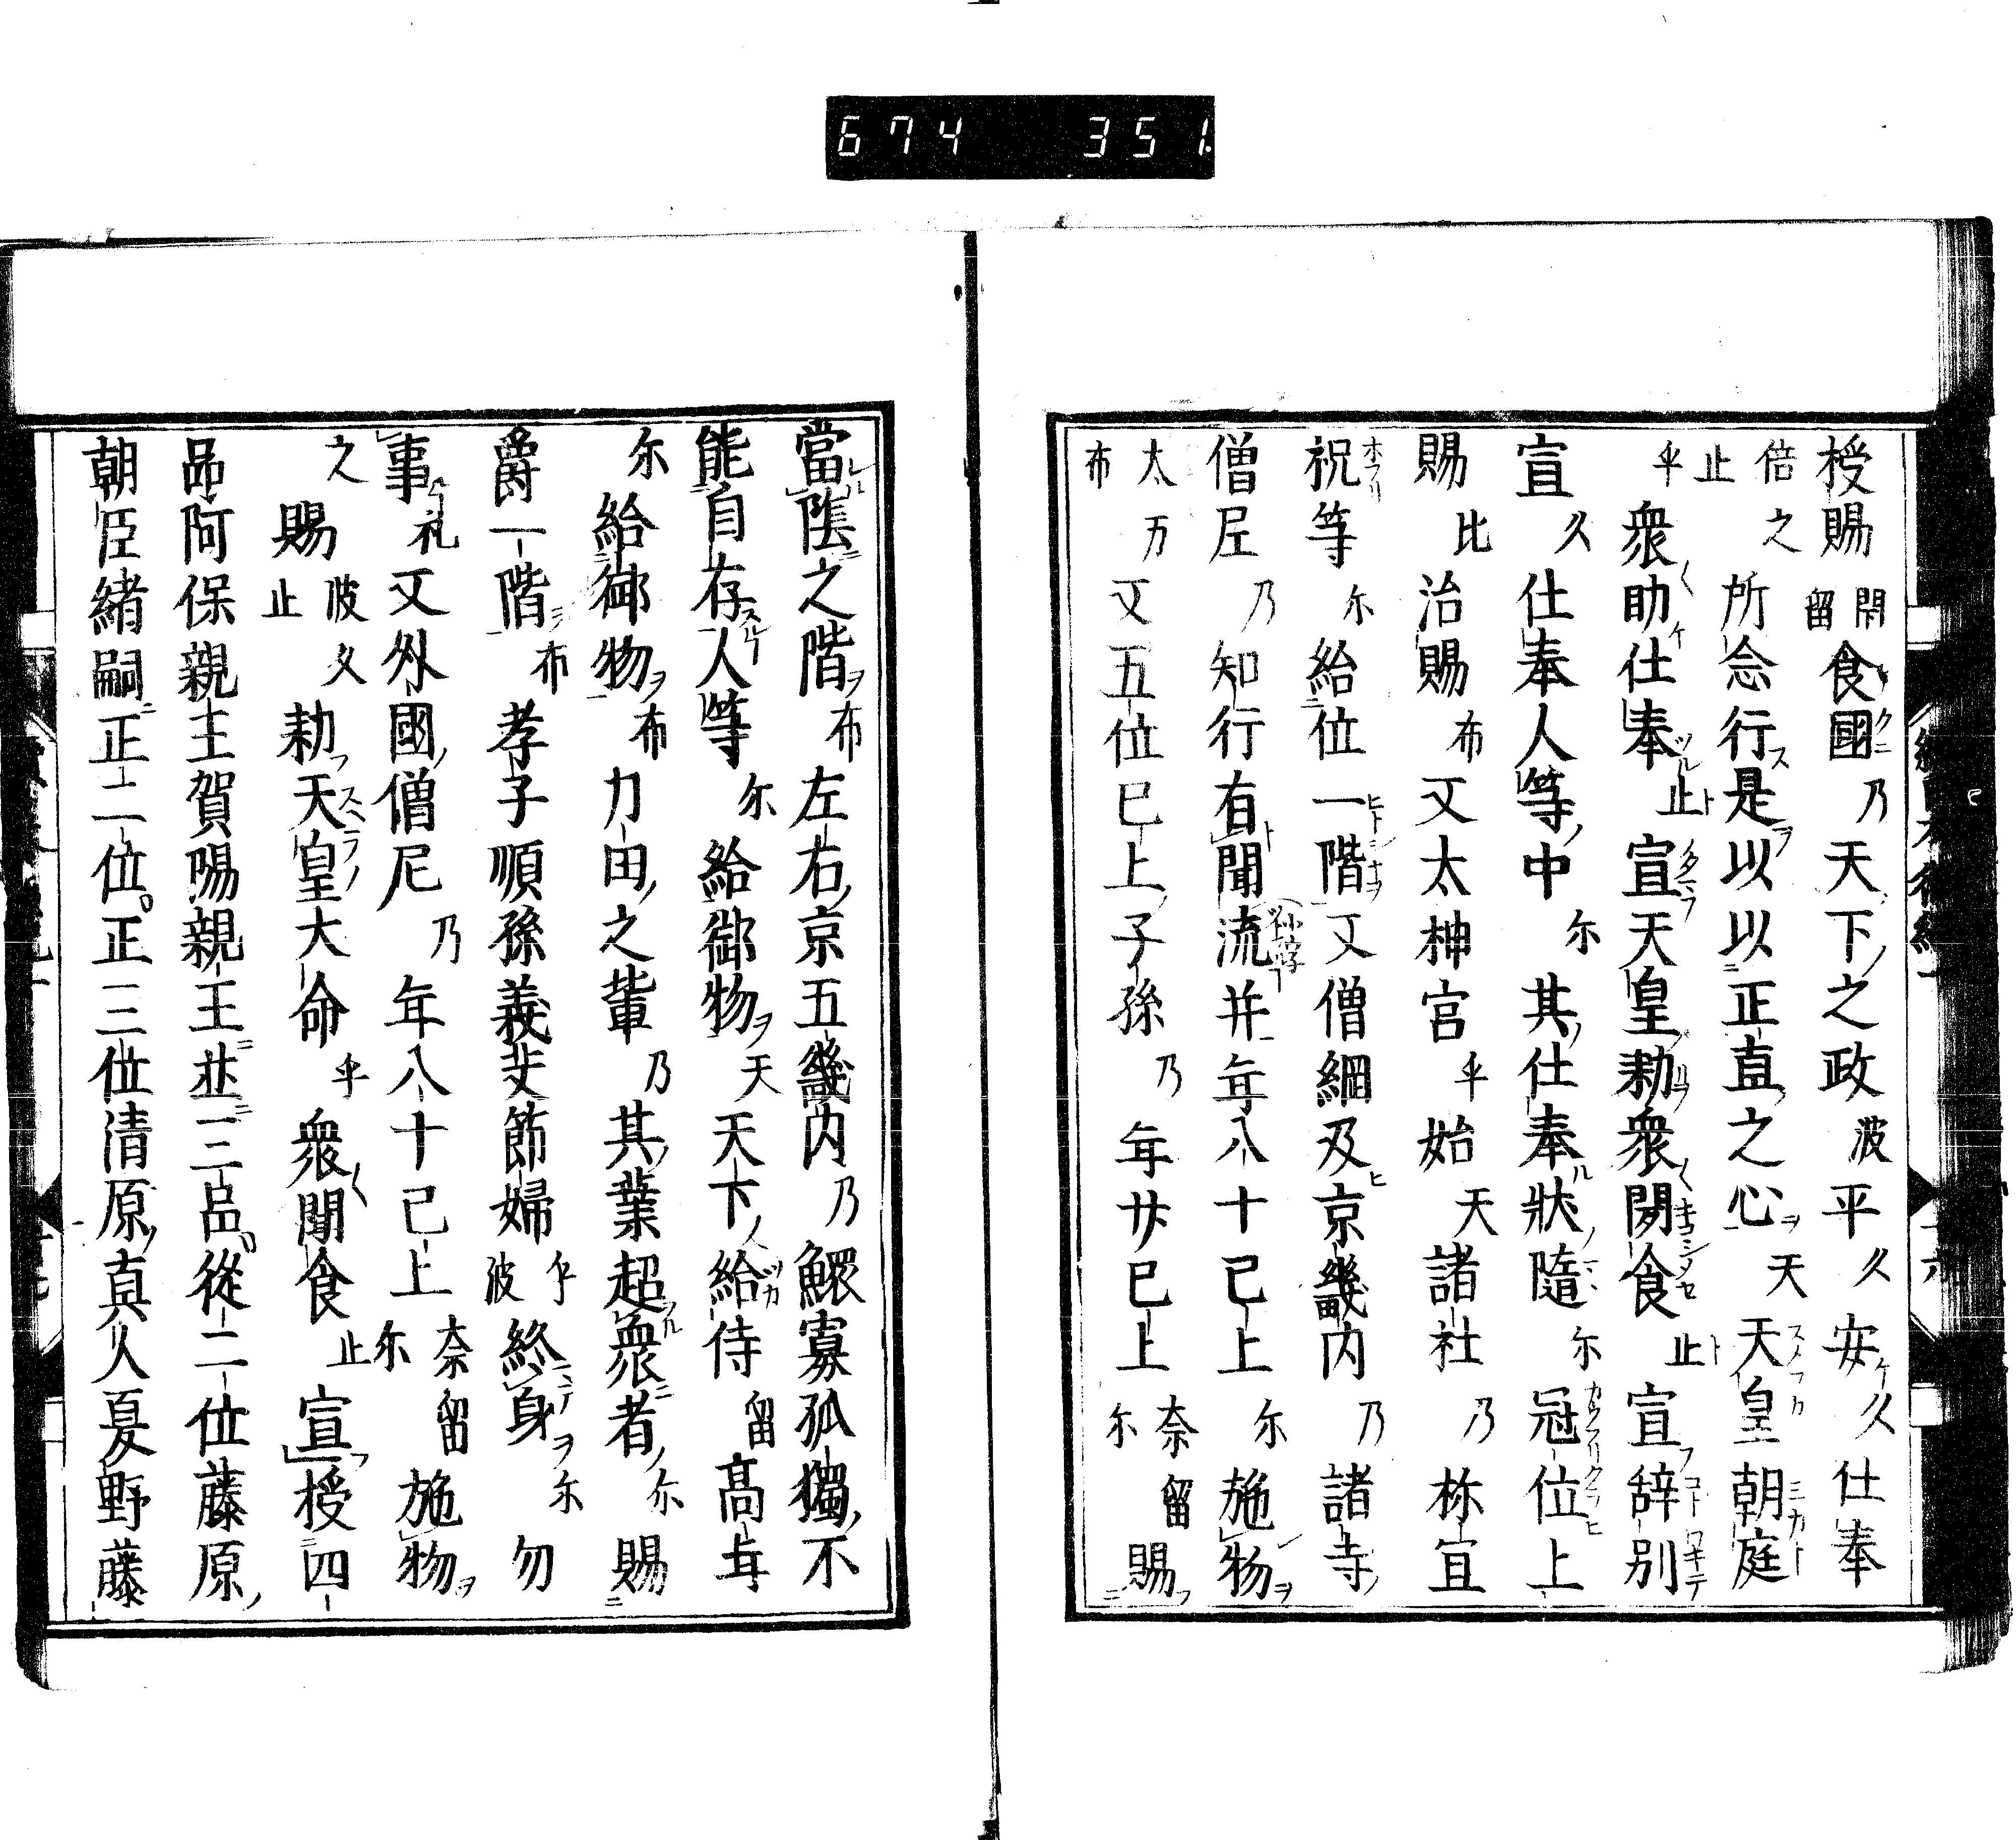 674 351
授賜閇留食國乃天下之政波平久安久仕奉
倍之止所念行是以以正直之心天天皇朝庭
乎衆助仕奉止宣天皇勅衆聞食止宣辞別
宣久仕奉人等中尓其仕奉狀隨尓冠位上
賜比治賜布又太神宮乎始天諸社乃祢宜
祝等尓給位一階又僧綱及京畿内乃諸寺
僧尼乃知行有聞流并年八十已上尓施物
布太万又五位已上子孫乃年廿已上尓奈留賜
當蔭之階布左右京五畿内乃鰥寡孤獨不
能自存人等尓給御物天天下給侍留髙年
尓給御物布力田之輩乃其業超衆者尓賜
爵一階布孝子順孫義夫節婦乎波終身尓勿
事礼又外國僧尼乃年八十已上尓奈留施物
之賜波止久勅天皇大命乎衆聞食止宣授四
品阿保親王賀陽親王並三品從二位藤原
朝臣緒嗣正二位正三位清原真人夏野藤